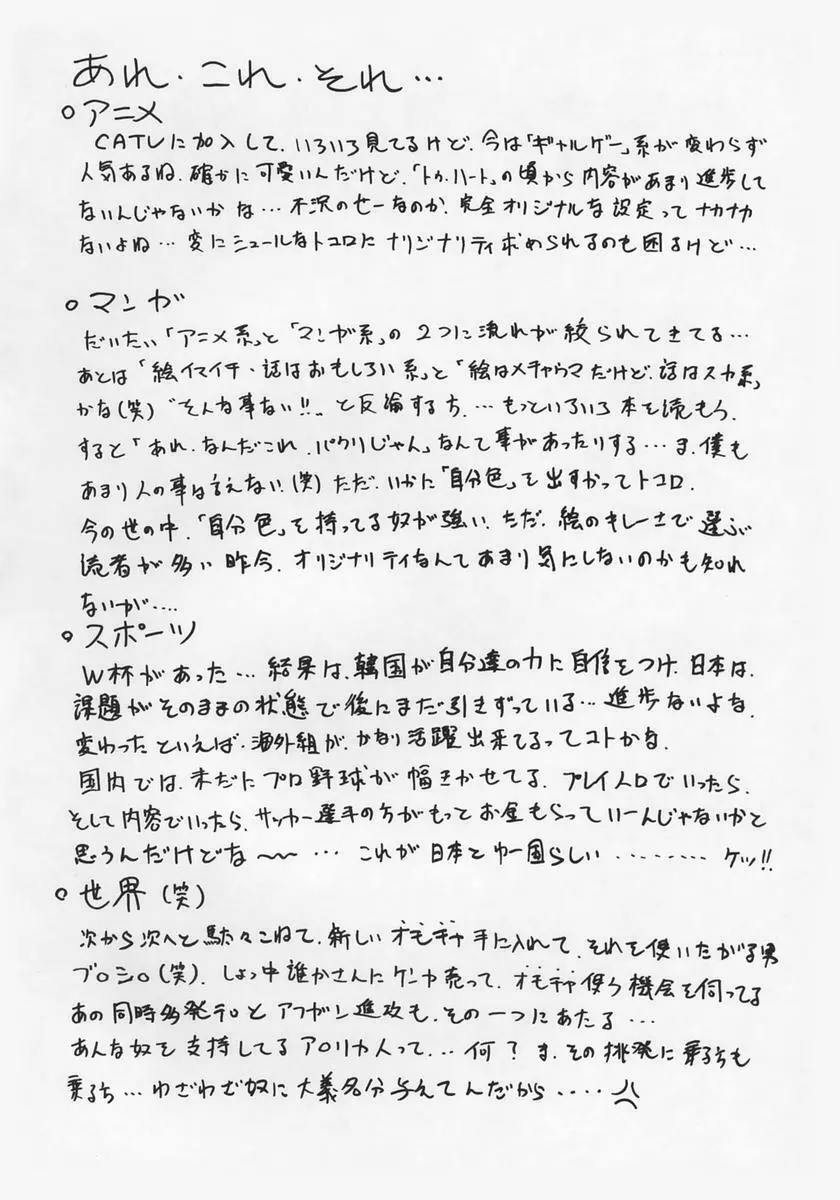 あれ・これ・それ…
○アニメ
CATVに加入して、いろいろ見てるけど、今は「ギャルゲー」系が変わらず
人気あるね。確かに可愛いんだけど、「トゥ・ハート」の頃から内容があまり進歩して
ないんじゃないかな…不況のせーなのか、完全オリジナルな設定ってナカナカ
ないよね…変にシュールなトコロにオリジナリティ求められるのも困るけど…
○マンガ
だいたい「アニメ系」と「マンガ系」の2つに流れが絞られてきてる…
あとは「絵イマイチ・話はおもしろい系」と「絵はメチャウマだけど、話はスカ系」
かな(笑)"そんな事ない!!"と反論する方、…もっといろいろ本を読もう。
すると「あれ、なんだこれ、パクりじゃん」なんて事があったりする…ま、僕も
あまり人の事は言えない(笑)ただ、いかに「自分色」を出すかってトコロ。
今の世の中、「自分色」を持ってる奴が強い。ただ、絵のキレーさで選ぶ
読者が多い昨今、オリジナリティなんてあまり気にしないのかも知れ
ないが….
○スポーツ
W杯があった…結果は、韓国が自分達の力に自信をつけ、日本は、
課題がそのままの状態で後にまだ引きずっている…進歩ないよな。
変わったといえば、海外組が、かなり活躍出来てるってコトかな。
国内では、未だにプロ野球が幅きかせてる。プレイ人口でいったら、
そして内容でいったら、サッカー選手の方がもっとお金もらっていーんじゃないかと
思うんだけどな〜〜…これが日本とゆー国らしい………ケッ!!
○世界(笑)
次から次へと駄々こねて、新しいオモチャ手に入れて、それを使いたがる男
ブ○シ○(笑)。しょっ中誰かさんにケンカ売って、オモチャ使う機会を伺ってる
あの同時多発テロとアフガン進攻も、その一つにあたる…
あんな奴を支持してるア○リカ人って…何?ま、その挑発に乗る方も
乗る方…わざわざ奴に大義名分与えてんだから….